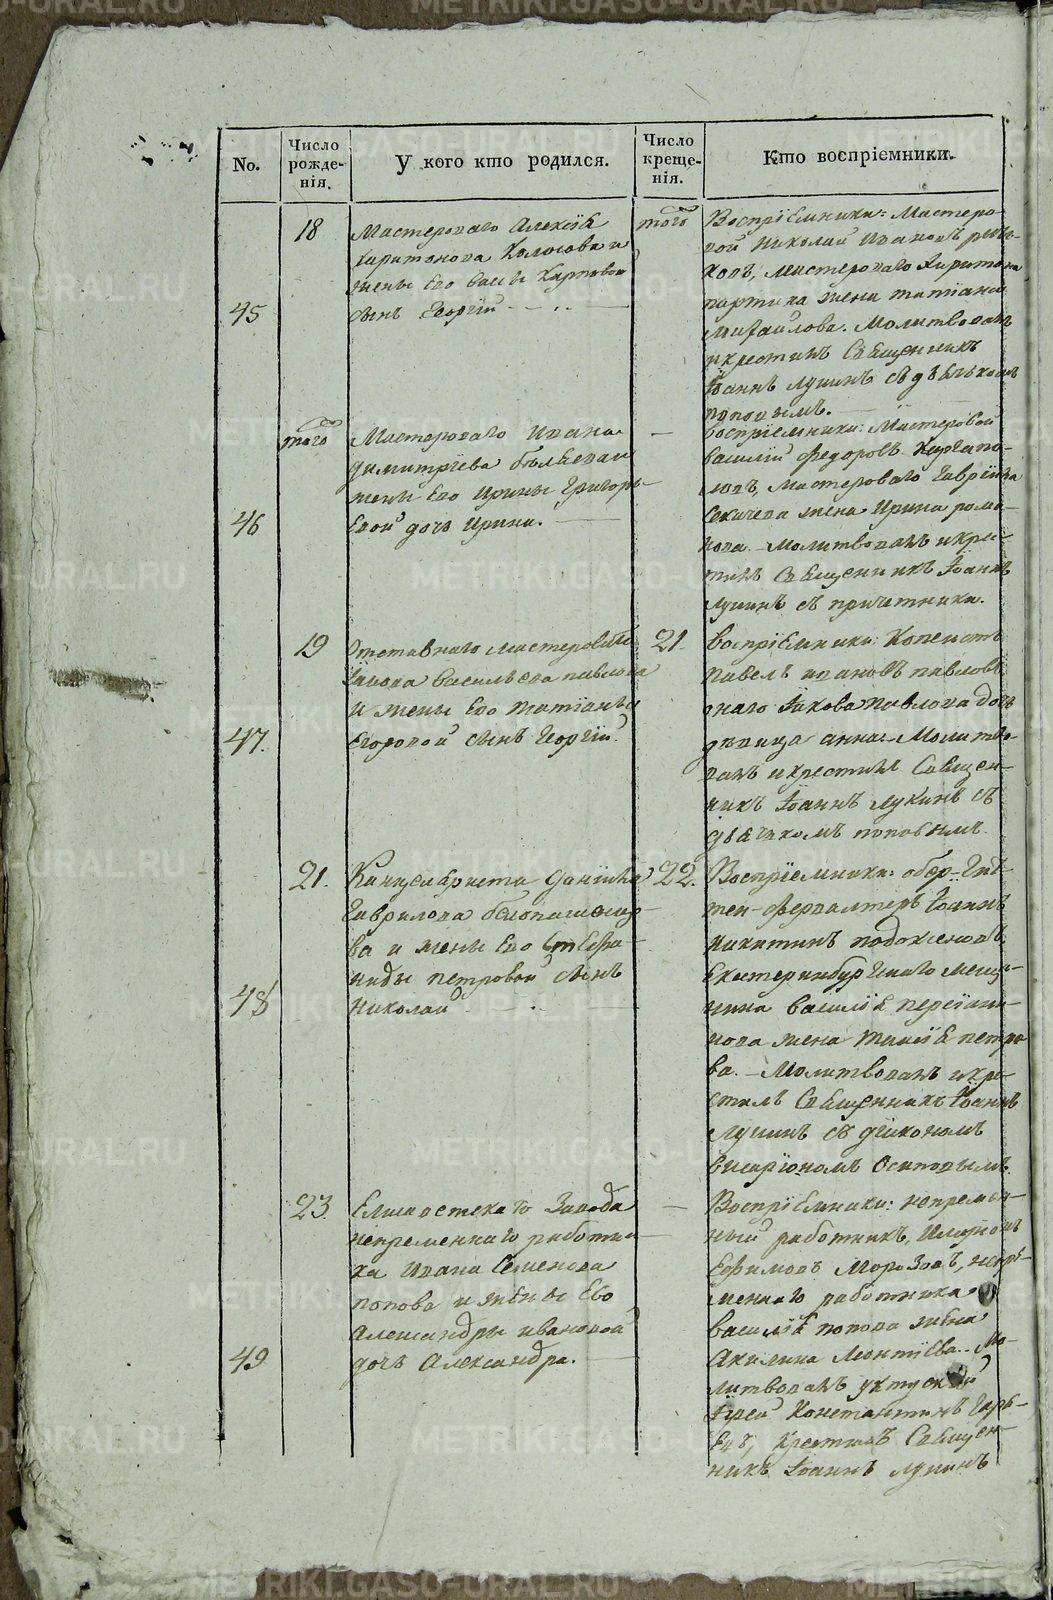 No.
Число рожде-нія.
У кого кто родился.
Число креще-нія.
Кто воспріемники.
45
18
Мастероваго Алексѣя
Харитонова Колосова и
жены Его Васы Карповой
сынъ Георгій
того
Воспріемники: Мастеро-
вой Николай Ивановъ
мастероваго Харитона
жена татіана
Михайлова. Молитвовалъ
и крестилъ Священникъ
Іоаннъ Лукинъ съ дьячкомъ
поповымъ.
46
того
Мастероваго Ивана
димитріева
жены Его Ирины Григорь-
Евой дочь Ирина.
воспріемники: Мастеровой
василій федоровъ
мастероваго Гавріила
жена Ирина рома-
нова. Молитвовалъ и кре-
стилъ Священникъ Іоаннъ
Лукинъ съ причетники.
47.
19
Отставнаго мастероваго
Іакова васильева павлова
и жены Его татіаны
Егоровой сынъ Георгій.
21.
воспріемники: Копеистъ
павелъ ивановъ павловъ
онаго Іакова павлова дочь
дѣвица анна. Молитво-
валъ и крестилъ Священ-
никъ Іоаннъ Лукинъ съ
дьячкомъ поповымъ.
48
21.
Канцеляриста даніила
Гаврилова
ва и жены Его Стефа-
ниды петровой сынъ
Николай
22.
Воспріемники: обер-Гит-
тен-фервалтеръ Іоаннъ
никитинъ
Екатеринбургскаго мещя-
нина василія
нова жена таисія петро
ва. Молитвовалъ и кре-
стилъ Священникъ Іоаннъ
Лукинъ съ діякономъ
висаріономъ Осиповымъ.
49
23.
Елисаветскаго Завода
непременнаго работни-
ка Ивана Семенова
попова и жены Его
Александры ивановой
дочь Александра.
Воспріемники: непремѣн-
ный работникъ,
Ефимовъ Морозовъ, непре-
меннаго работника
василія попова жена
Акилина Леонтіева. Мо-
литвовалъ уктуской
Іерей Константинъ
крестилъ Священ-
никъ Іоаннъ Лукинъ
METRIKI.GASO-URAL.RU